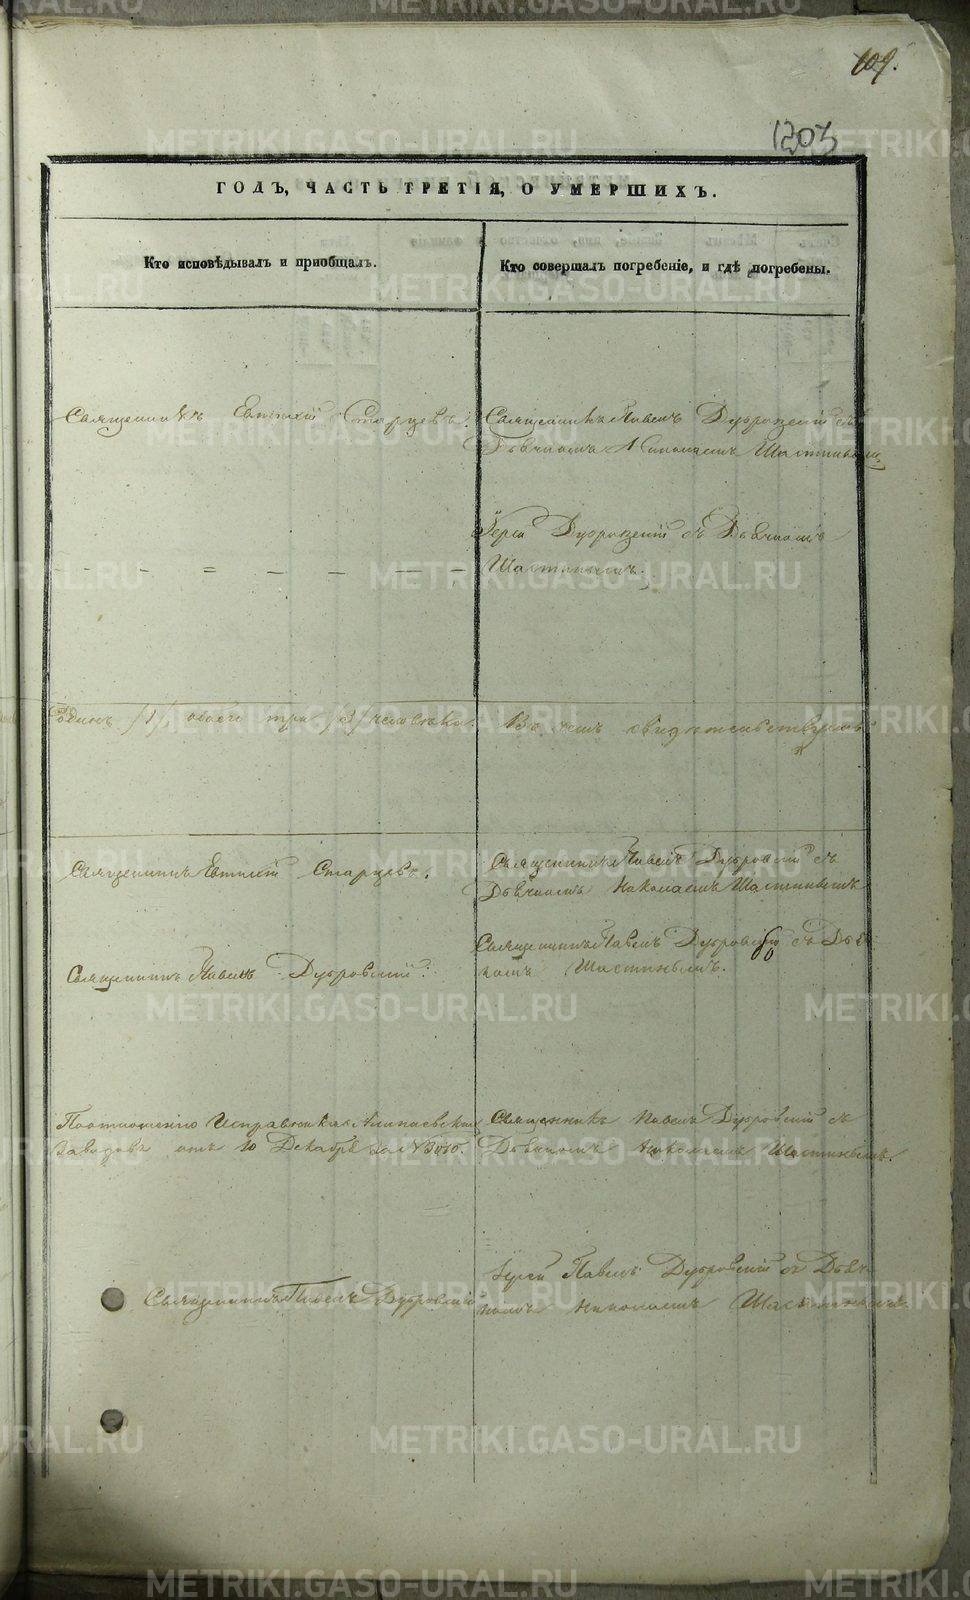 109.
1203
ГОДЪ, ЧАСТЬ ТРЕТІЯ, О УМЕРШИХЪ.
Кто исповѣдывалъ и приобщалъ.
Кто совершалъ погребеніе, и гдѣ погребены.
Священникъ Евтихій Старцевъ.
Священникъ Павелъ Дубровскій съ
Дьячкомъ Николаемъ Шастинымъ
Іерей Дубровскій съ Дьячкомъ
Шастинымъ.
Одинъ /1/, обоего три /3/ человѣка.
Въ чемъ свидетельствуемъ
Священникъ Евтихій Старцевъ.
Священникъ Павелъ Дубровскій съ
Дьячкомъ Николаемъ Шастинымъ
Священникъ Павелъ Дубровскій.
Священникъ Павелъ Дубровскій съ Дья
комъ Шастинымъ.
По отношенію Исправника Алапаевскихъ
Заводовъ отъ 10 Декабря за №
Священникъ Павелъ Дубровскій съ
Дьячкомъ Николаемъ Шастинымъ.
Священникъ Павелъ Дубровскій
Іерей Павелъ Дубровскій съ Дьяч
комъ Николаемъ Шастинымъ
METRIKI.GASO-URAL.RU